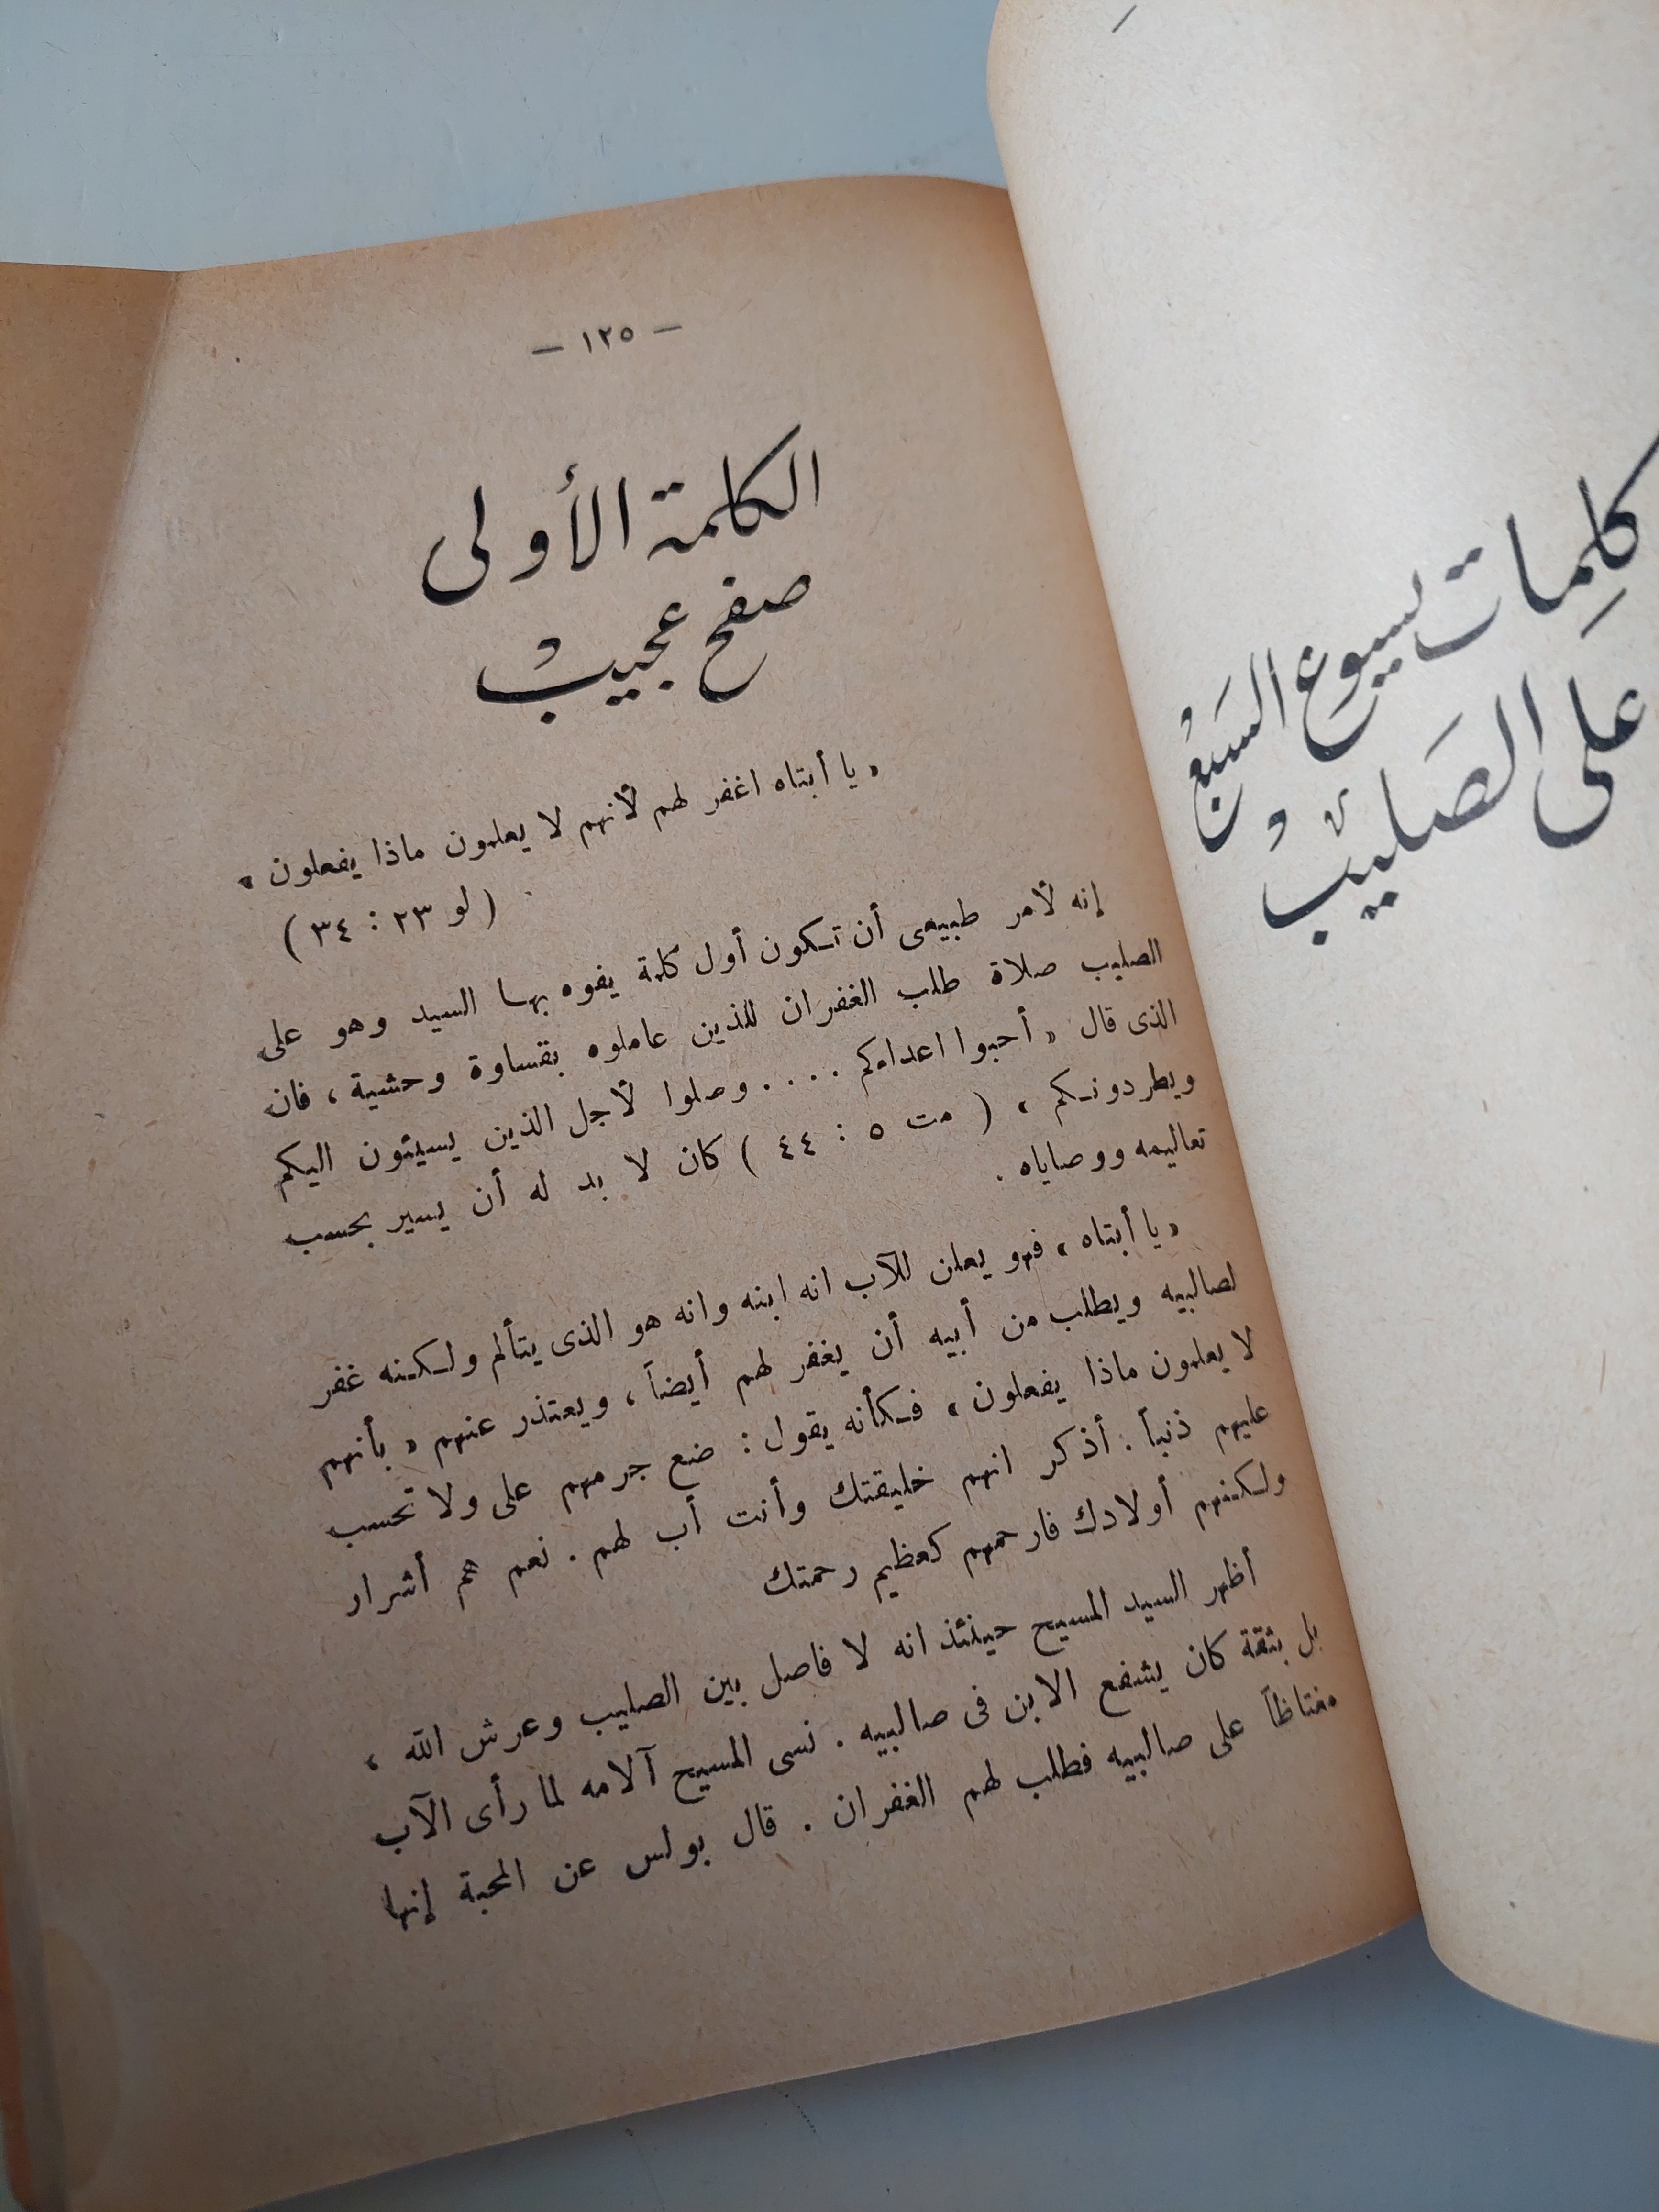 كلمات يسوع السبع
على الصليب
— ١٢٥ —
الكلمة الأولى
صفح عجيب
« يا أبتاه اغفر لهم لأنهم لا يعلمون ماذا يفعلون »
( لو ٢٣ : ٣٤ )
إنه لأمر طبيعى أن تكون أول كلمة يفوه بها السيد وهو على
الصليب صلاة طلب الغفران للذين عاملوه بقساوة وحشية ، فان
الذى قال « أحبوا اعداءكم .... وصلوا لأجل الذين يسيئون اليكم
ويطردونكم » ( مت ٥ : ٤٤ ) كان لا بد له أن يسير بحسب
تعاليمه ووصاياه .
« يا أبتاه » فهو يعلن للآب انه ابنه وانه هو الذى يتألم ولكنه غفر
لصالبيه ويطلب من أبيه أن يغفر لهم أيضاً ، ويعتذر عنهم « بأنهم
لا يعلمون ماذا يفعلون » فكأنه يقول : ضع جرمهم على ولا تحسب
عليهم ذنباً . أذكر انهم خليقتك وأنت أب لهم . نعم هم أشرار
ولكنهم أولادك فارحمهم كعظيم رحمتك
أظهر السيد المسيح حينئذ انه لا فاصل بين الصليب وعرش الله ،
بل بثقة كان يشفع الابن فى صالبيه . نسى المسيح آلامه لما رأى الآب
مغتاظاً على صالبيه فطلب لهم الغفران . قال بولس عن المحبة إنها